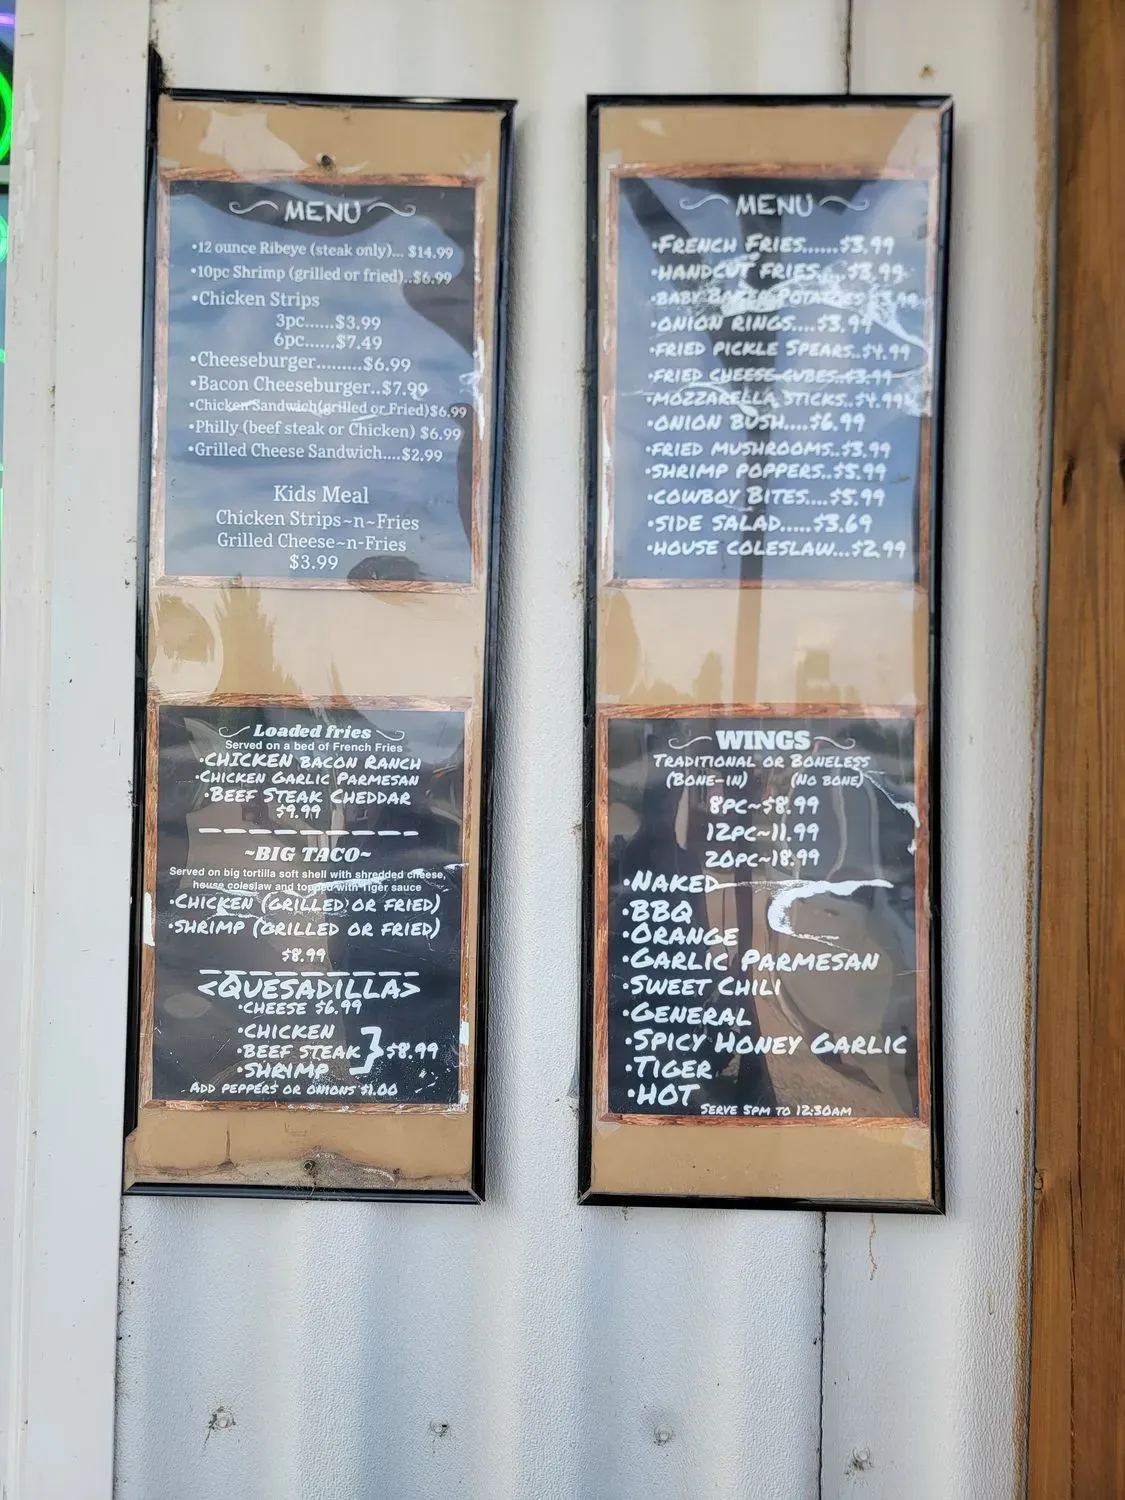 MENU
•12 ounce Ribeye (steak only)... $14.99
•10pc Shrimp (grilled or fried)..$6.99
•Chicken Strips
3pc......$3.99
6pc......$7.49
•Cheeseburger.........$6.99
•Bacon Cheeseburger..$7.99
•Chicken Sandwich(grilled or Fried)$6.99
•Philly (beef steak or Chicken) $6.99
•Grilled Cheese Sandwich....$2.99
Kids Meal
Chicken Strips~n~Fries
Grilled Cheese~n-Fries
$3.99
Loaded fries
Served on a bed of French Fries
•CHICKEN BACON RANCH
•CHICKEN GARLIC PARMESAN
•BEEF STEAK CHEDDAR
$9.99
~BIG TACO~
Served on big tortilla soft shell with shredded cheese,
house coleslaw and topped with Tiger sauce
•CHICKEN (GRILLED OR FRIED)
•SHRIMP (GRILLED OR FRIED)
$8.99
<QUESADILLA>
•CHEESE $6.99
•CHICKEN
•BEEF STEAK } $8.99
•SHRIMP
ADD PEPPERS OR ONIONS $1.00
MENU
•FRENCH FRIES......$3.99
•HANDCUT FRIES....$3.99
•BABY BAKER POTATOES $3.99
•ONION RINGS....$3.99
•FRIED PICKLE SPEARS..$4.99
•FRIED CHEESE CUBES..$3.99
•MOZZARELLA STICKS..$4.99
•ONION BUSH....$6.99
•FRIED MUSHROOMS..$3.99
•SHRIMP POPPERS..$5.99
•COWBOY BITES....$5.99
•SIDE SALAD.....$3.69
•HOUSE COLESLAW...$2.99
WINGS
TRADITIONAL OR BONELESS
(BONE-IN) (NO BONE)
8PC~$8.99
12PC~11.99
20PC~18.99
•NAKED
•BBQ
•ORANGE
•GARLIC PARMESAN
•SWEET CHILI
•GENERAL
•SPICY HONEY GARLIC
•TIGER
•HOT
SERVE 5PM TO 12:30AM